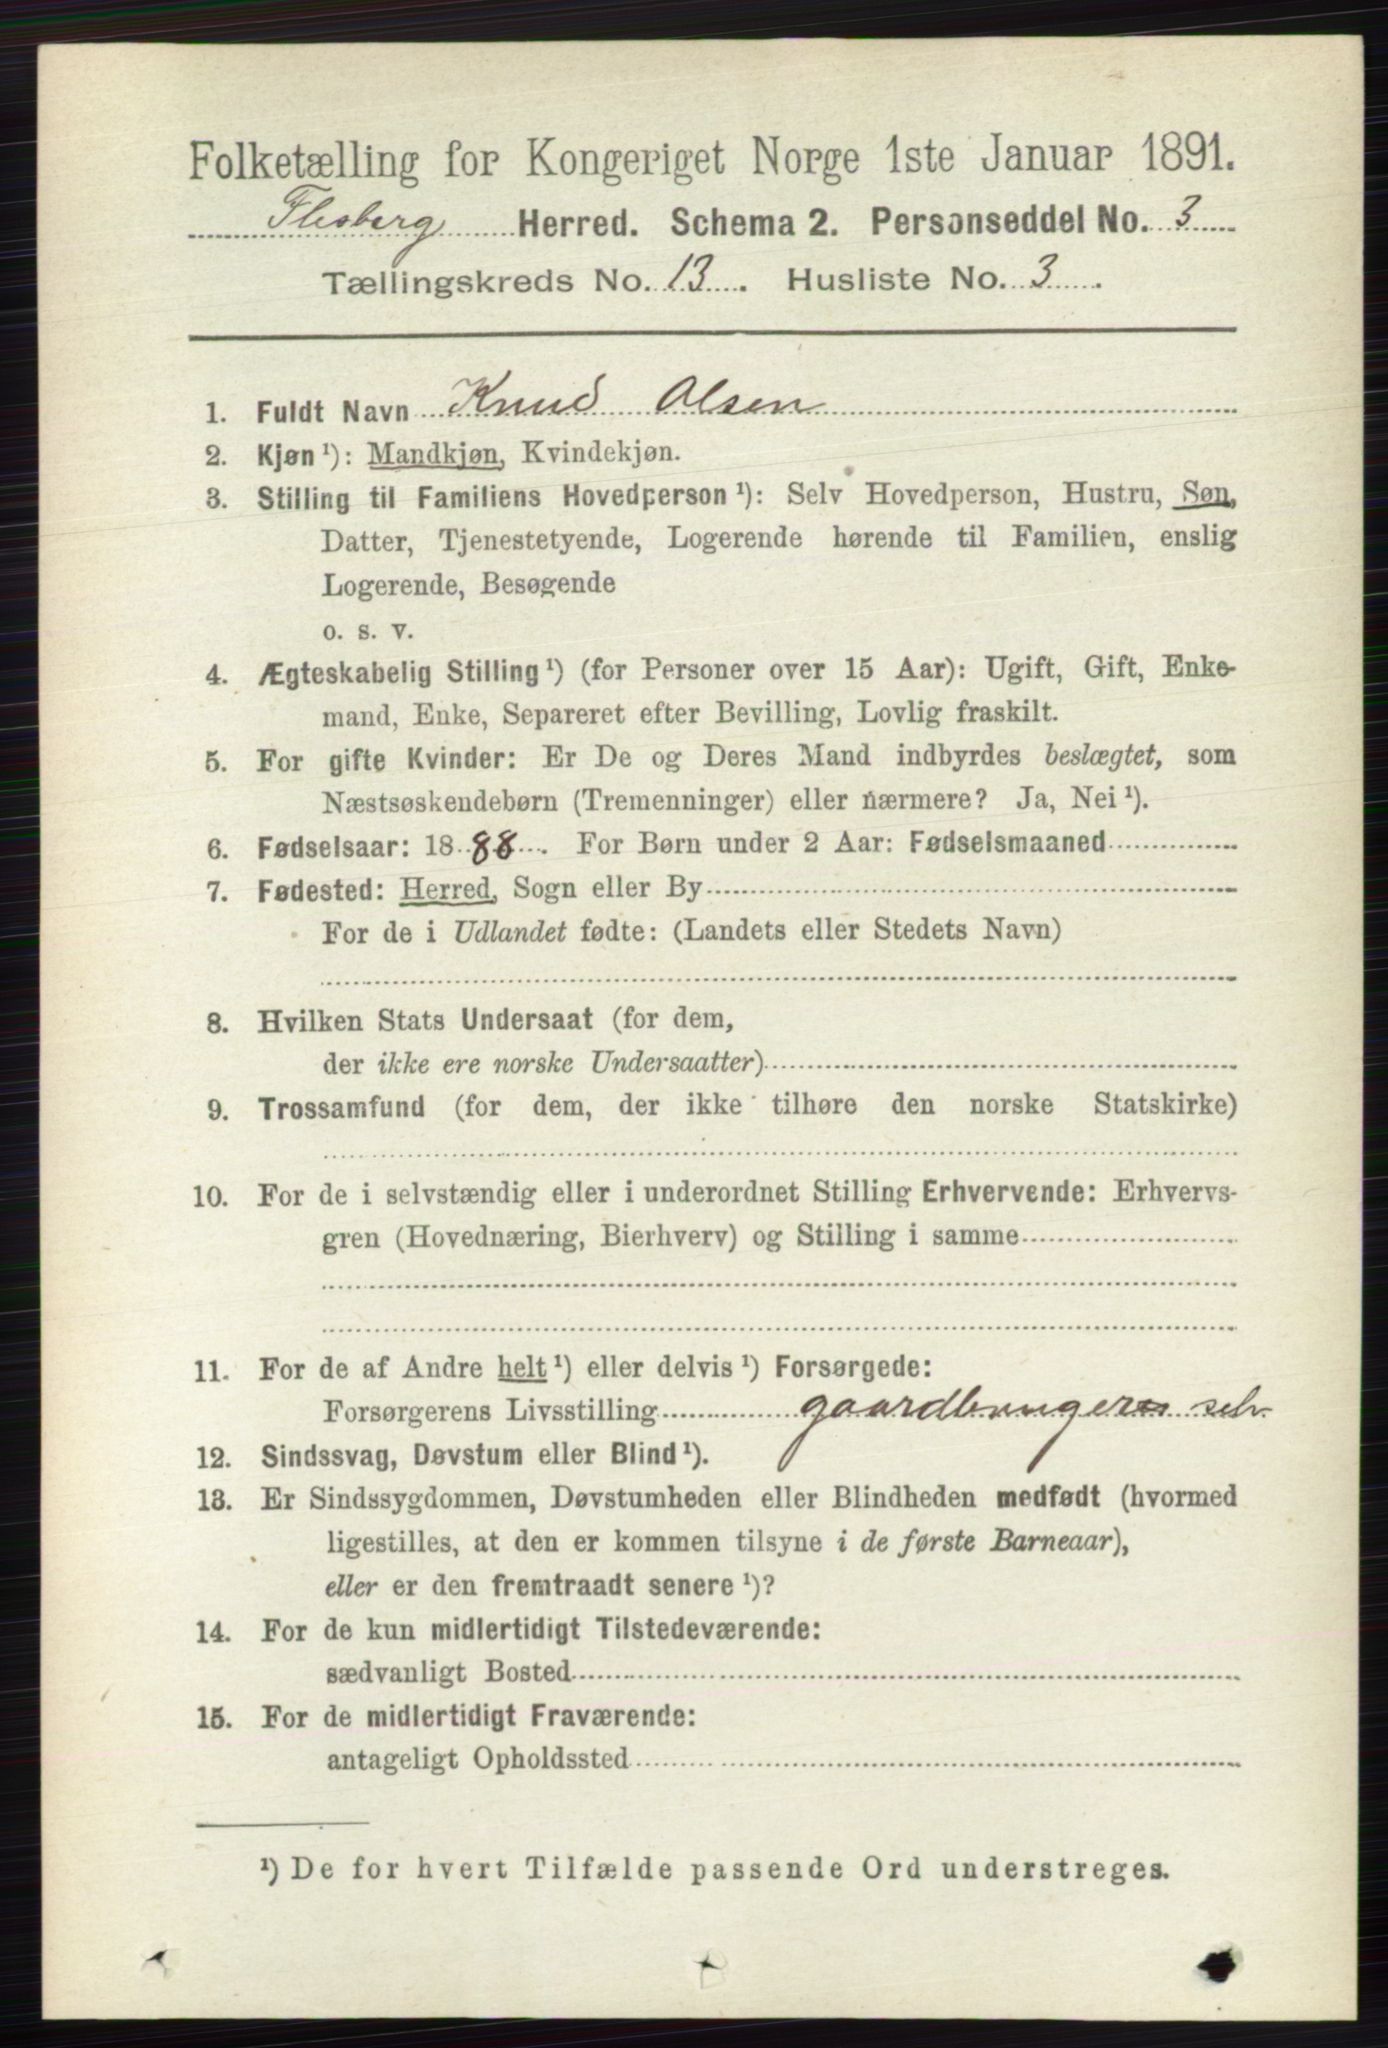 Folketælling for Kongeriget Norge 1ste Januar 1891.
Flesberg Herred. Schema 2. Personseddel No. 3
Tællingskreds No. 13. Husliste No. 3.
1. Fuldt Navn Knud Olsen
2. Kjøn¹): Mandkjøn, Kvindekjøn.
3. Stilling til Familiens Hovedperson¹): Selv Hovedperson, Hustru, Søn,
Datter, Tjenestetyende, Logerende hørende til Familien, enslig
Logerende, Besøgende
o. s. v.
4. Ægteskabelig Stilling¹) (for Personer over 15 Aar): Ugift, Gift, Enke-
mand, Enke, Separeret efter Bevilling, Lovlig fraskilt.
5. For gifte Kvinder: Er De og Deres Mand indbyrdes beslægtet, som
Næstsøskendebørn (Tremenninger) eller nærmere? Ja, Nei¹).
6. Fødselsaar: 1888. For Børn under 2 Aar: Fødselsmaaned
7. Fødested: Herred, Sogn eller By
For de i Udlandet fødte: (Landets eller Stedets Navn)
8. Hvilken Stats Undersaat (for dem,
der ikke ere norske Undersaatter)
9. Trossamfund (for dem, der ikke tilhøre den norske Statskirke)
10. For de i selvstændig eller i underordnet Stilling Erhvervende: Erhvervs-
gren (Hovednæring, Bierhverv) og Stilling i samme
11. For de af Andre helt¹) eller delvis¹) Forsørgede:
Forsørgerens Livsstilling gaardbruger selv
12. Sindssvag, Døvstum eller Blind¹).
13. Er Sindssygdommen, Døvstumheden eller Blindheden medfødt (hvormed
ligestilles, at den er kommen tilsyne i de første Barneaar),
eller er den fremtraadt senere¹)?
14. For de kun midlertidigt Tilstedeværende:
sædvanligt Bosted
15. For de midlertidigt Fraværende:
antageligt Opholdssted
¹) De for hvert Tilfælde passende Ord understreges.